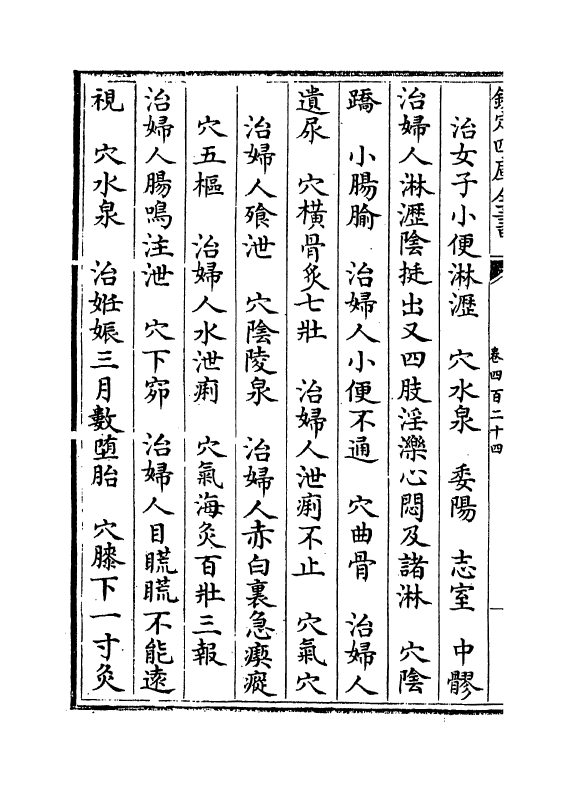 欽定四庫全書
卷四百二十四
治女子小便淋瀝　穴水泉　委陽　志室　中髎
治婦人淋瀝陰挺出又四肢淫濼心悶及諸淋　穴陰
蹻　小腸腧　治婦人小便不通　穴曲骨　治婦人
遺尿　穴橫骨炙七壯　治婦人泄痢不止　穴氣穴
治婦人飱泄　穴陰陵泉　治婦人赤白裏急瘈瘲
穴五樞　治婦人水泄痢　穴氣海灸百壯三報
治婦人腸鳴注泄　穴下窌　治婦人目䀮䀮不能遠
視　穴水泉　治姙娠三月數墮胎　穴膝下一寸灸